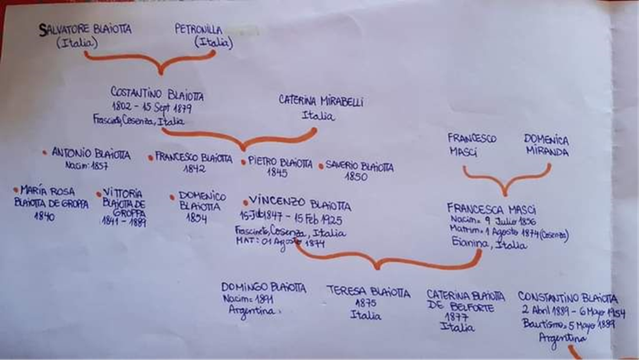 SALVATORE BLAIOTTA
(Italia)
PETRONILLA
(Italia)
COSTANTINO BLAIOTTA
1802 - 15 Sept 1879
Frascineto, Cosenza, Italia
CATERINA MIRABELLI
Italia
FRANCESCO
MASCI
DOMENICA
MIRANDA
• ANTONIO BLAIOTTA
Nacim: 1857
• FRANCESCO BLAIOTTA
1842
• PIETRO BLAIOTTA
1845
• SAVERIO BLAIOTTA
1850
• MARÍA ROSA
BLAIOTTA DE GROPPA
1840
• VITTORIA
BLAIOTTA DE
GROPPA
1841 - 1889
• DOMENICO
BLAIOTTA
1854
• VINCENZO BLAIOTTA
1847 - 15 Feb 1925
Frascineto, Cosenza, Italia
MAT: 01 Agosto 1874
FRANCESCA MASCI
Nacim: 9 Julio 1856
Matrim: 1 Agosto 1874 (Cosenza)
Eianina, Italia
DOMINGO BLAIOTTA
Nacim: 1891
Argentina.
TERESA BLAIOTTA
1875
Italia
CATERINA BLAIOTTA
DE BELFORTE
1877
Italia
CONSTANTINO BLAIOTTA
2 Abril 1889 - 6 Mayo 1954
Bautismo, 5 Mayo 1889
Argentina